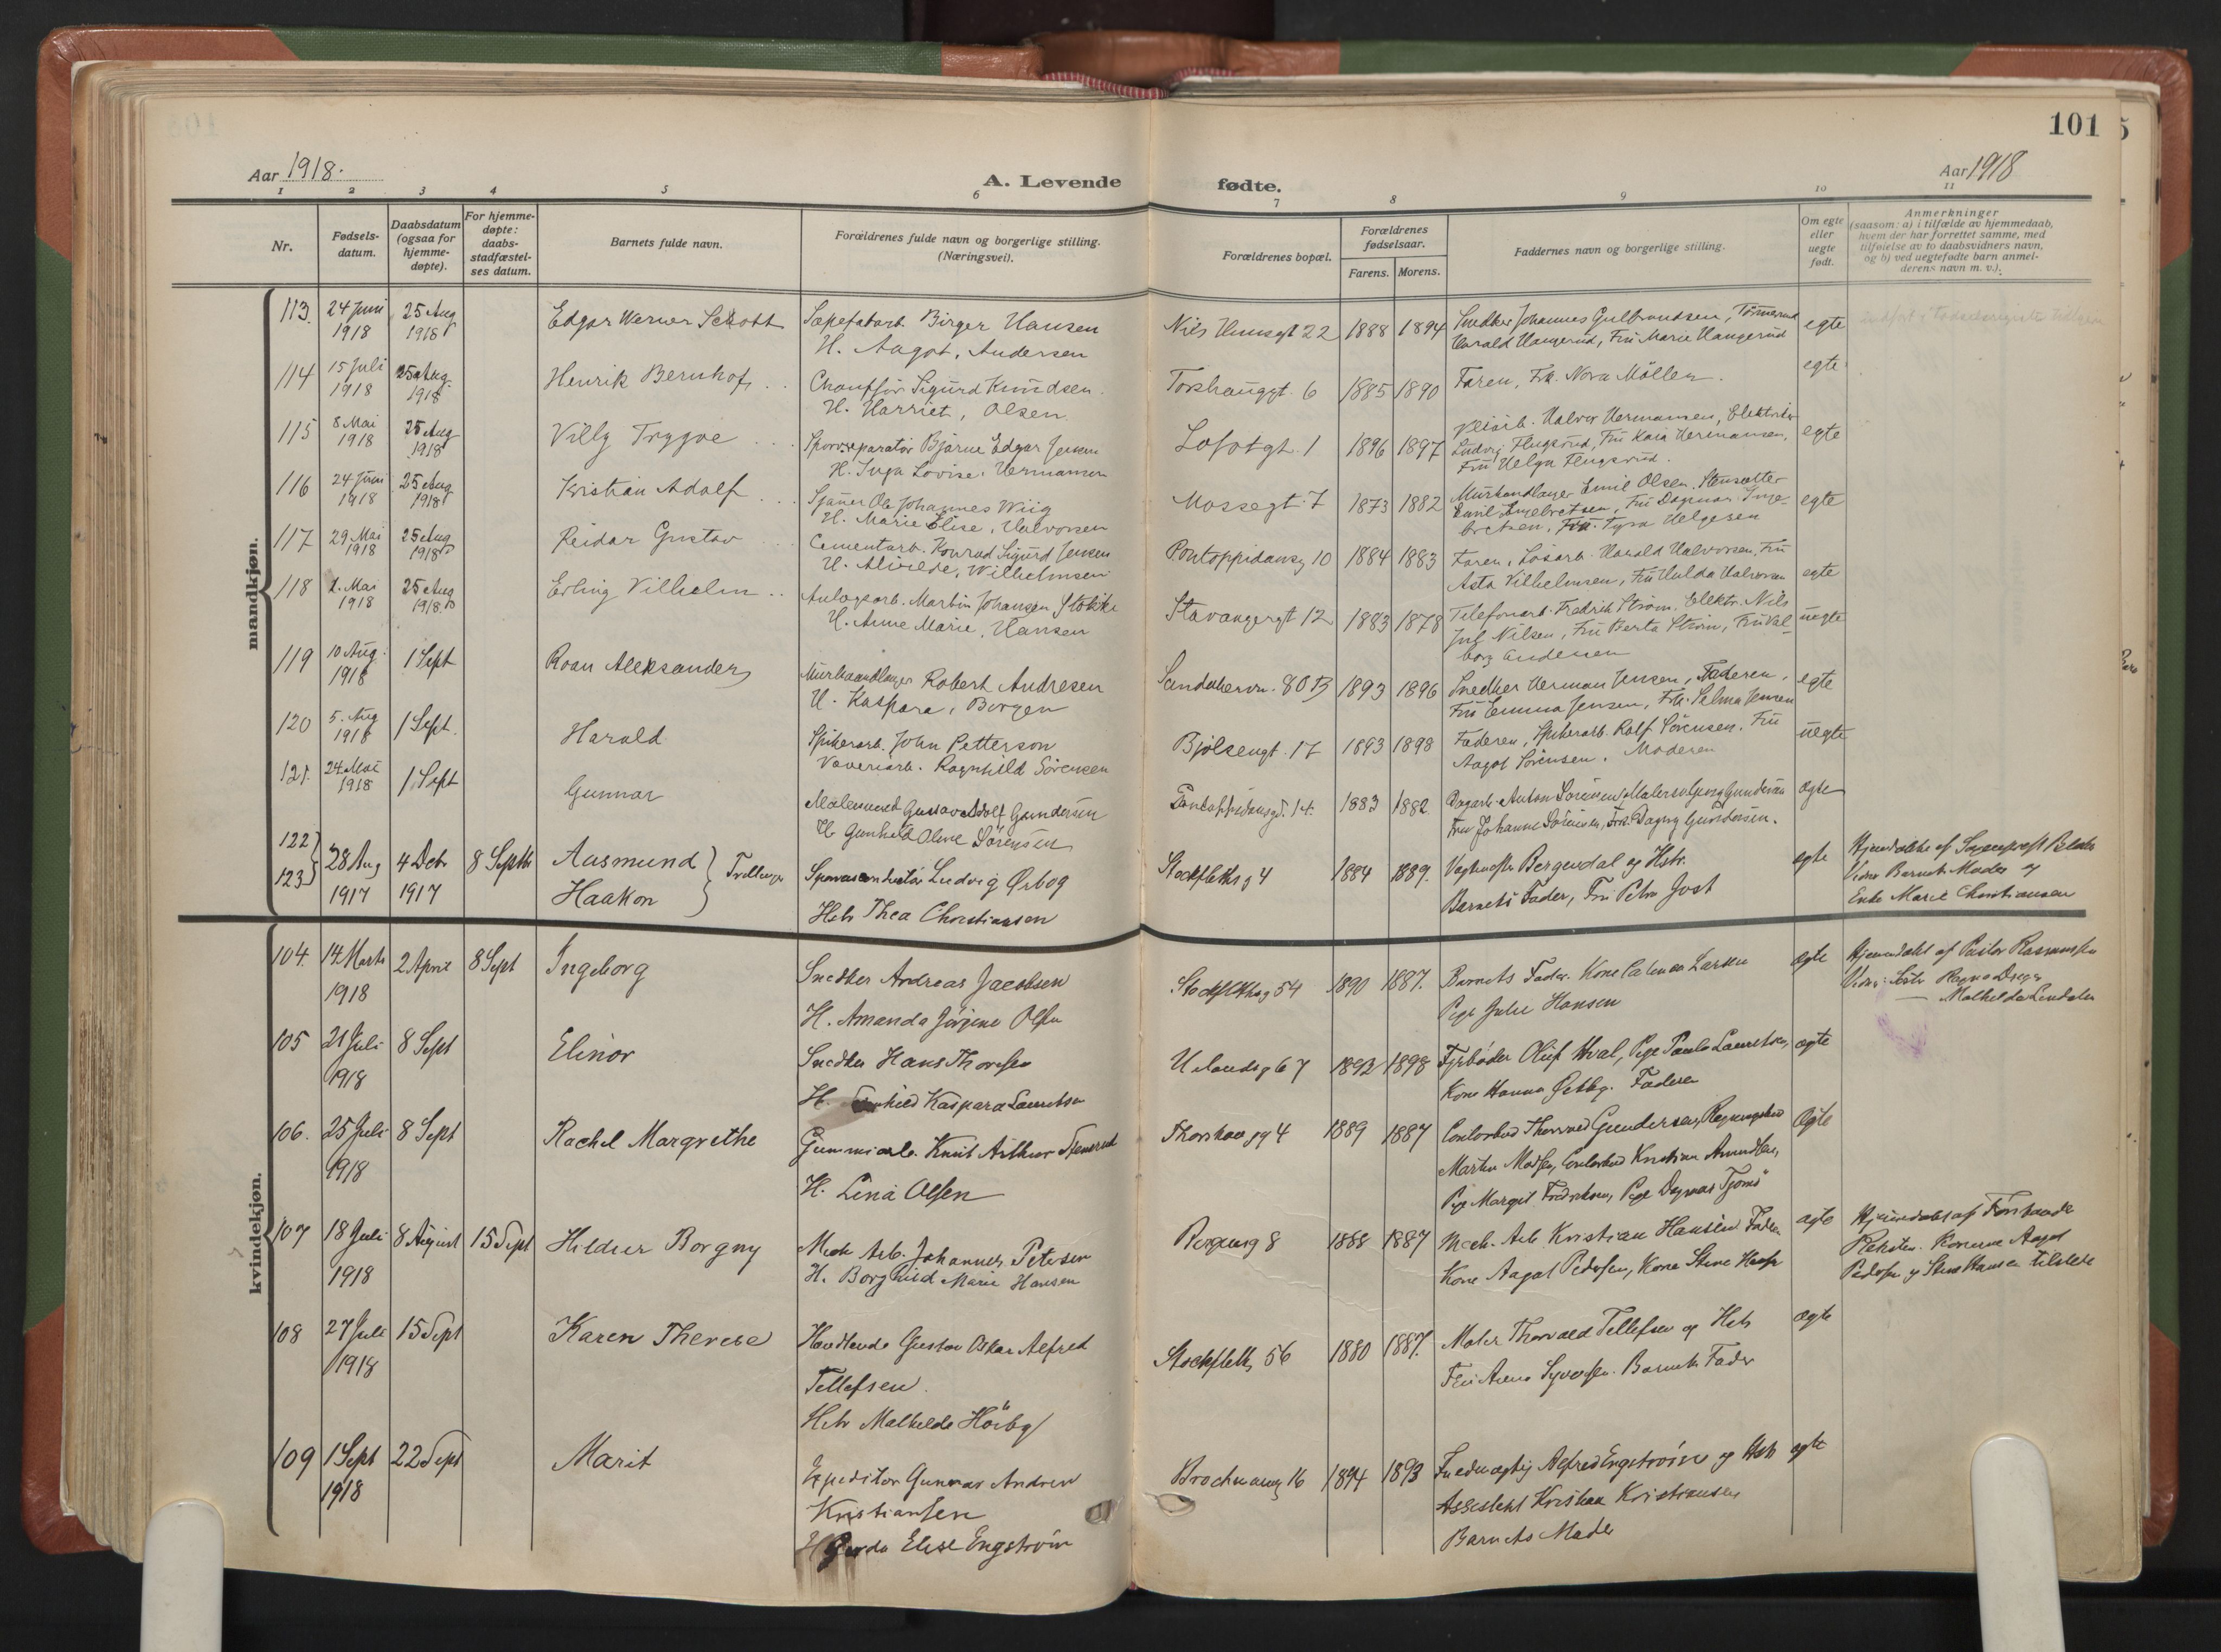 101
Aar 1918.
A. Levende
fødte.
Aar 1918
1 2 3 4 5 6 7 8 9 10 11
Nr.
Fødselsdatum.
Daabsdatum (ogsaa for hjemmedøpte).
For hjemmedøpte: daabsstadfæstelses datum.
Barnets fulde navn.
Forældrenes fulde navn og borgerlige stilling. (Næringsvei).
Forældrenes bopæl.
Forældrenes fødselsaar.
Farens. Morens.
Faddernes navn og borgerlige stilling.
Om egte eller uegte født.
Anmerkninger
(saasom: a) i tilfælde av hjemmedaab,
hvem der har forrettet samme, med
tilføielse av to daabsvidners navn,
og b) ved uegtefødte barn anmelderens navn m. v.).
mandkjøn.
113. 24 Juni 1918 25 Aug 1918 Edgar Werner Schott
Sæpefabarb. Birger Hansen
H. Aagot, Andersen
Nils Huusgt 22 1888 1894
Snedker Johannes Gulbrandsen, Tømmerm
Harald Haugerud, Fru Marie Haugerud
egte
114 15 Juli 1918 25 Aug. 1918 Henrik Bernhof
Chauffür Sigurd Knudsen
H. Harriet, Olsen
Torshauggt. 6 1885 1890
Faren, Frk. Nora Möller.
egte
115 8 Mai 1918 25 Aug 1918 Villy Trygve
Sporv.reparatør Bjarne Edgar Jensen
H. Inga Lovise, Hermansen
Lofotgt. 1 1896 1897
Halvor Hermansen, Elektriker
Ludvig Flugsrud, Fru Kaia Hermansen,
Fru Helga Flugsrud.
egte
116 24 Juni 1918 25 Aug 1918 Kristian Adolf
Sjauer Ole Johannes Wiig
H. Marie Elise, Halvorsen
Mossegt. 7 1873 1882
Murhandlanger Emil Olsen, Stensætter
Emil Ingebretsen, Fru Dagmar Inge-
bretsen, Frk. Tyra Helgesen
egte
117 29 Mai 1918 25 Aug 1918 Reidar Gustav
Cementarb. Konrad Sigurd Jensen
H. Alvilde, Wilhelmsen
Pontoppidansg 10 1884 1883
Faren, Løsarb. Harald Halvorsen, Fru
Asta Vilhelmsen, Fru Hulda Halvorsen
egte
118 1. Mai 1918 25 Aug 1918 Erling Vilhelm
Anlægsarb. Martin Johansen Stokke
H. Anne Marie, Hansen
Stavangergt 12 1883 1878
Telefonarb. Fredrik Strøm, Elektr. Nils
Jul Nilsen, Fru Berta Strøm, Fru Val-
borg Andersen
uegte
119 10 Aug. 1918 1 Sept Roan Aleksander
Murhaandlanger Robert Andresen
H. Kaspara, Borgen
Sandakervn. 80 B 1893 1896
Snedker Herman Jensen, Faderen,
Fru Emma Jensen, Frk. Selma Jensen
egte
120 5. Aug 1918 1 Sept. Harald
Spikerarb. John Petterson
Væveriarb. Ragnhild Sörensen
Bjölsengt. 17 1893 1898
Faderen, Spikerarb. Rolf Sörensen, Fru
Aagot Sörensen. Moderen
uegte
121. 24. Mai 1918 1 Sept Gunnar
Malermest Gustav Adolf Gundersen
H. Gunhild Oline Sörensen
Pontoppidansgd. 14. 1883 1882.
Dagarb. Anton Sörensen, Malersv Georg Gundersen
Fru Johanne Sörensen, Frk. Dagny Gundersen.
egte
122 123 28 Aug 1917 4 Debr 1917 8 Septbr Aasmund Haakon Tvillinger
Sporveiskonduktør Ludvig Ørbog
Hstr Thea Christiansen
Stockflethsg 4 1884 1889.
Vagtmester Bergendal og Hstr.
Barnets Fader, Fru Petra Jost
egte
Hjemdøbte af Sogneprest
Vidner Barnets Moder og
Enke Marie Christiansen
kvindekjøn.
104. 14 Marts 1918 2 April 8 Sept Ingeborg
Snedker Andreas Jacobsen
H. Amanda Jörgine Olsen
Stockflethsg 54 1890 1887.
Barnets Fader. Kone Larsen
Pige Julie Hansen
egte
Hjemmedøbt af Pastor Rasmussen
Vidner: Søster Ragna
Mathilde Lindalen
105 21 Juli 1918 8 Sept Elinor
Snedker Hans Thoresen
H. Kaspara Lauritsen
Uelandsg 67 1892 1898
Fyrbøder Oluf Hval, Pige Paula Lauritsen,
Kone Hanna Østbyg. Faderen
egte
106. 25 Juli 1918 8 Sept Rachel Margrethe
Gummiarb. Knut Arthur Stenerud
H. Lina Olsen
Thorshaugg 4 1889 1887
Contorbud Thorvald Gundersen,
Martin Madsen, Contorbud Kristian Amundsen,
Pige Margit Fredriksen, Pige Dagmar Tjomö
Egte
107 18 Juli 1918 8 August 15 Sept Hildur Borgny
Mek Arb. Johannes Petersen
H. Borghild Marie Hansen
Bergensg 8 1888 1887
Mech. Arb Kristian Hansen. Fader
Kone Aagot Pedersen, Kone Stine Hansen
egte
Hjemdøbt af Forstander
Konerne Aagot
Pedersen og Stine Hansen tilstede
108 27 Juli 1918 15 Sept Karen Therese
Handlende Gustav Oskar Alfred
Tellefsen.
Hstr Mathilde Höiby
Stockfleths 56 1880 1887.
Maler Thorvald Tellefsen og Hstr
Fru Anna Syversen. Barnets Fader
egte
109 1 Sept 1918 22 Sept Marit
Expeditør Gunnar Andrew
Kristiansen
H Gerda Elise Engström
Brochmansg 16 1894 1893
Fuldmægtig Alfred Engström og Hstr
Assistent Kristian Kristiansen
Barnets Moder
egte